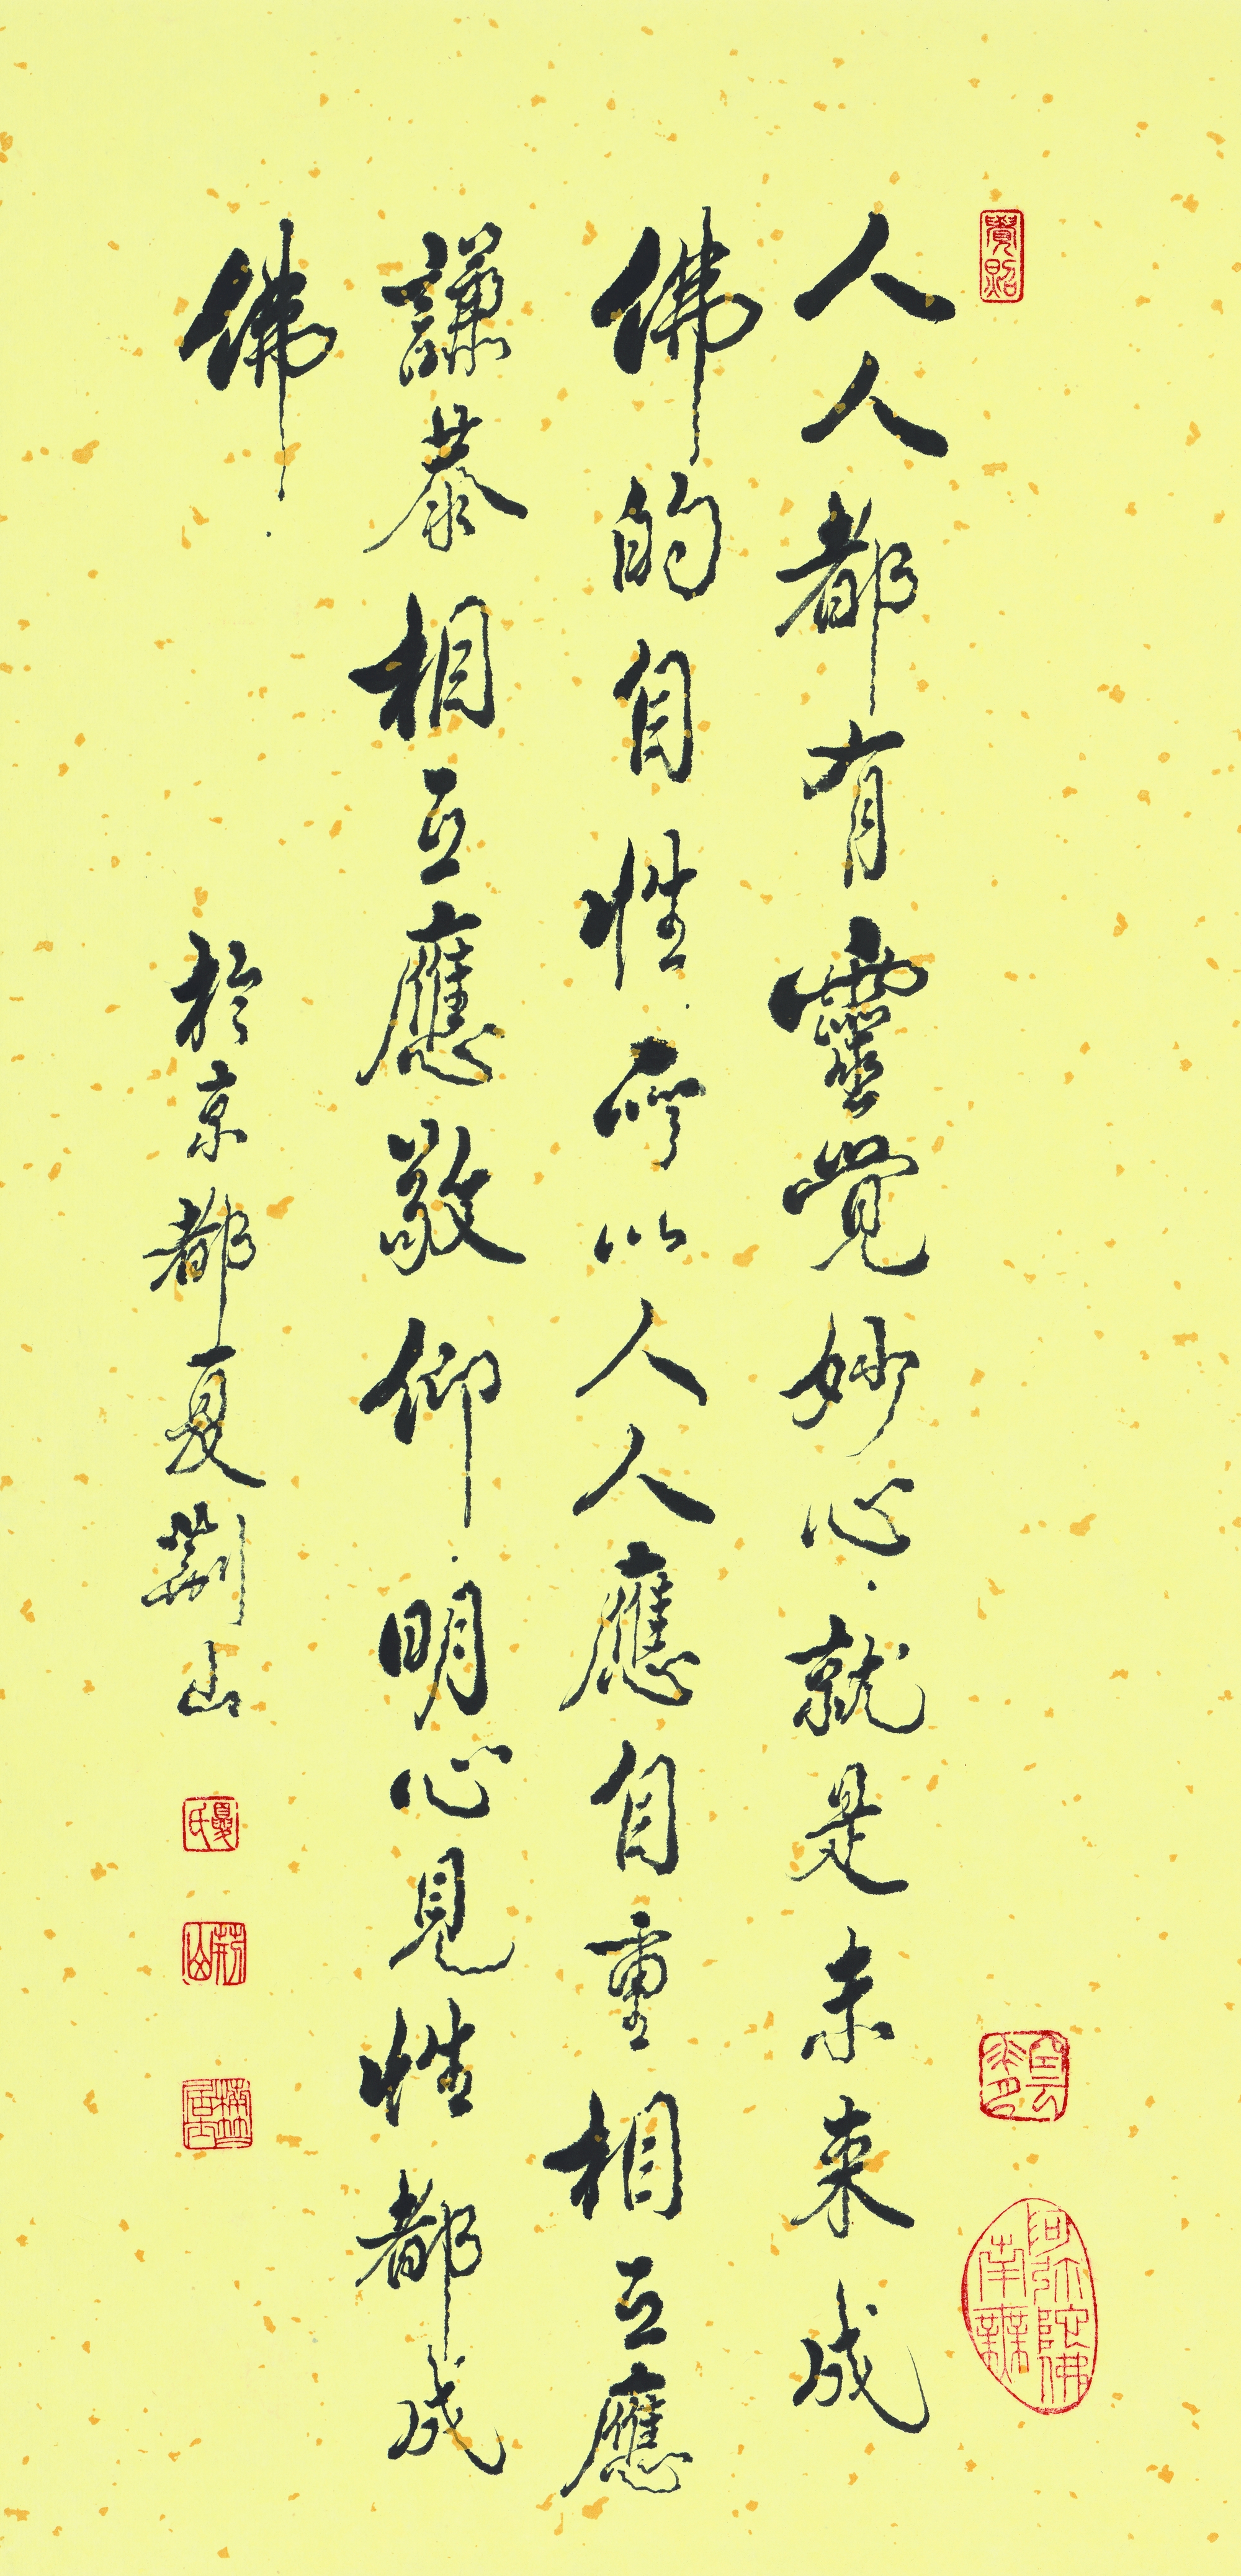 人人都有靈覺妙心就是未來成
佛的自性所以人人應自重相互應
謙恭相互應敬仰明心見性都成
佛
於京都夏荊山
夏氏
荊山
南無阿弥陀佛